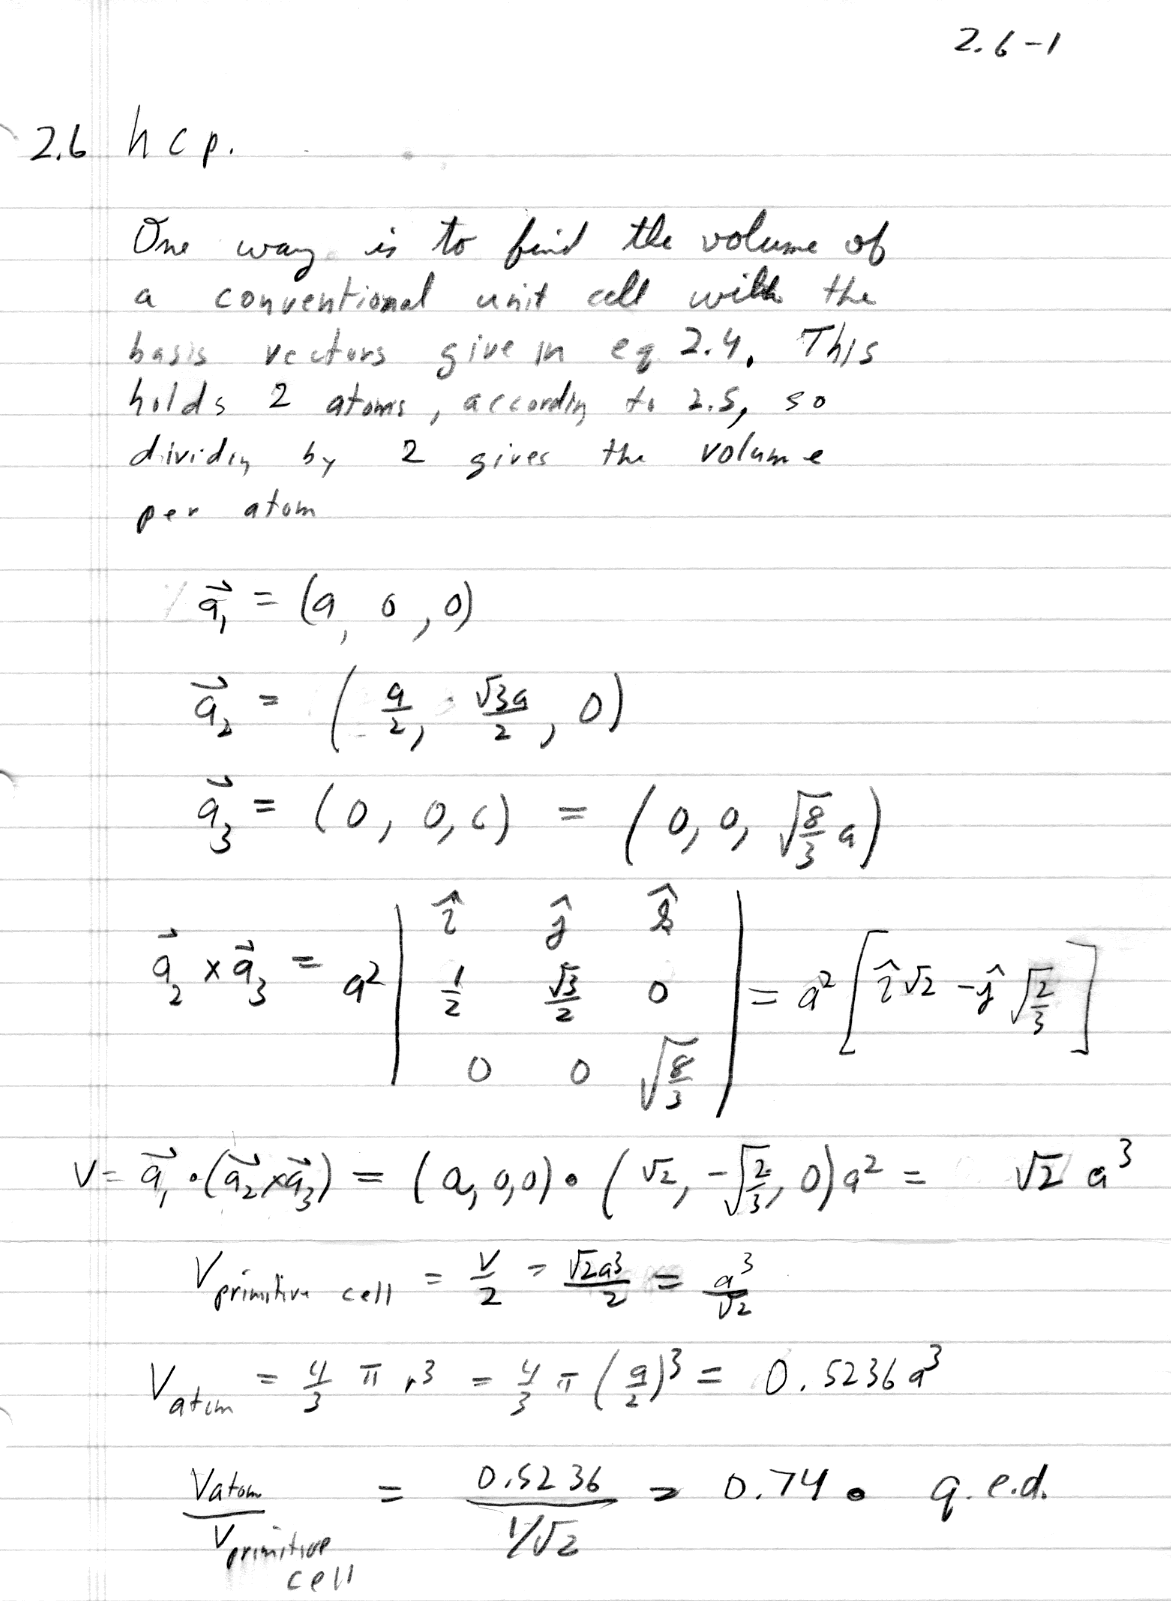 2.6-1
2.6 hcp.
One way is to find the volume of
a conventional unit cell with the
basis vectors give in eq 2.4. This
holds 2 atoms, according to 2.5, so
dividing by 2 gives the volume
per atom
a⃗₁ = (a, 0, 0)
a⃗₂ = (a/2, √3a/2, 0)
a⃗₃ = (0, 0, c) = (0, 0, √(8/3) a)
a⃗₂ × a⃗₃ = a² | î ĵ k̂ ; 1/2 √3/2 0 ; 0 0 √(8/3) | = a² [î√2 - ĵ√(2/3)]
V = a⃗₁ • (a⃗₂ × a⃗₃) = (a, 0, 0) • (√2, -√(2/3), 0) a² = √2 a³
V primitive cell = V/2 = √2a³/2 = a³/√2
V atom = 4/3 π r³ = 4/3 π (a/2)³ = 0.5236 a³
V atom / V primitive cell = 0.5236 / 1/√2 = 0.74. q.e.d.